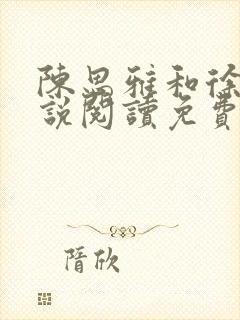 陳思雅和徐
說閱讀免費
隋欣